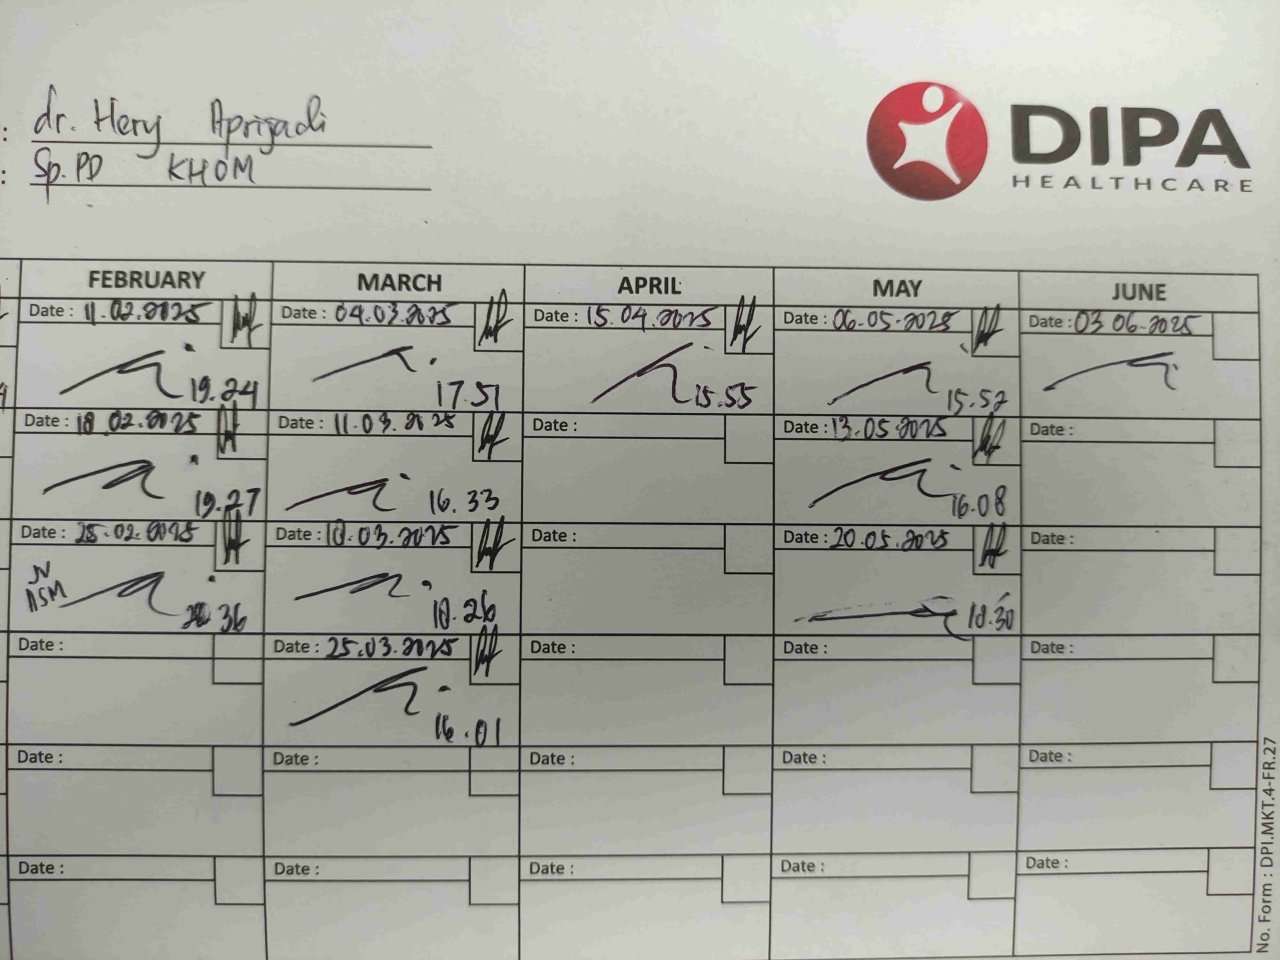 : dr. Hery Aprijadi
: Sp.PD KHOM
DIPA
HEALTHCARE
FEBRUARY MARCH APRIL MAY JUNE
Date : 11.02.2025 Date : 04.03.2025 Date : 15.04.2025 Date : 06.05.2025 Date : 03 06.2025
19.24 17.51 15.55 15.52
Date : 18.02.2025 Date : 11.03.2025 Date : Date : 13.05.2025 Date :
19.27 16.33 16.08
Date : 25.02.2025 Date : 18.03.2025 Date : Date : 20.05.2025 Date :
36 18.26 18.30
Date : Date : 25.03.2025 Date : Date : Date :
16.01
Date : Date : Date : Date : Date :
Date : Date : Date : Date : Date :
No. Form : DPI.MKT.4-FR.27